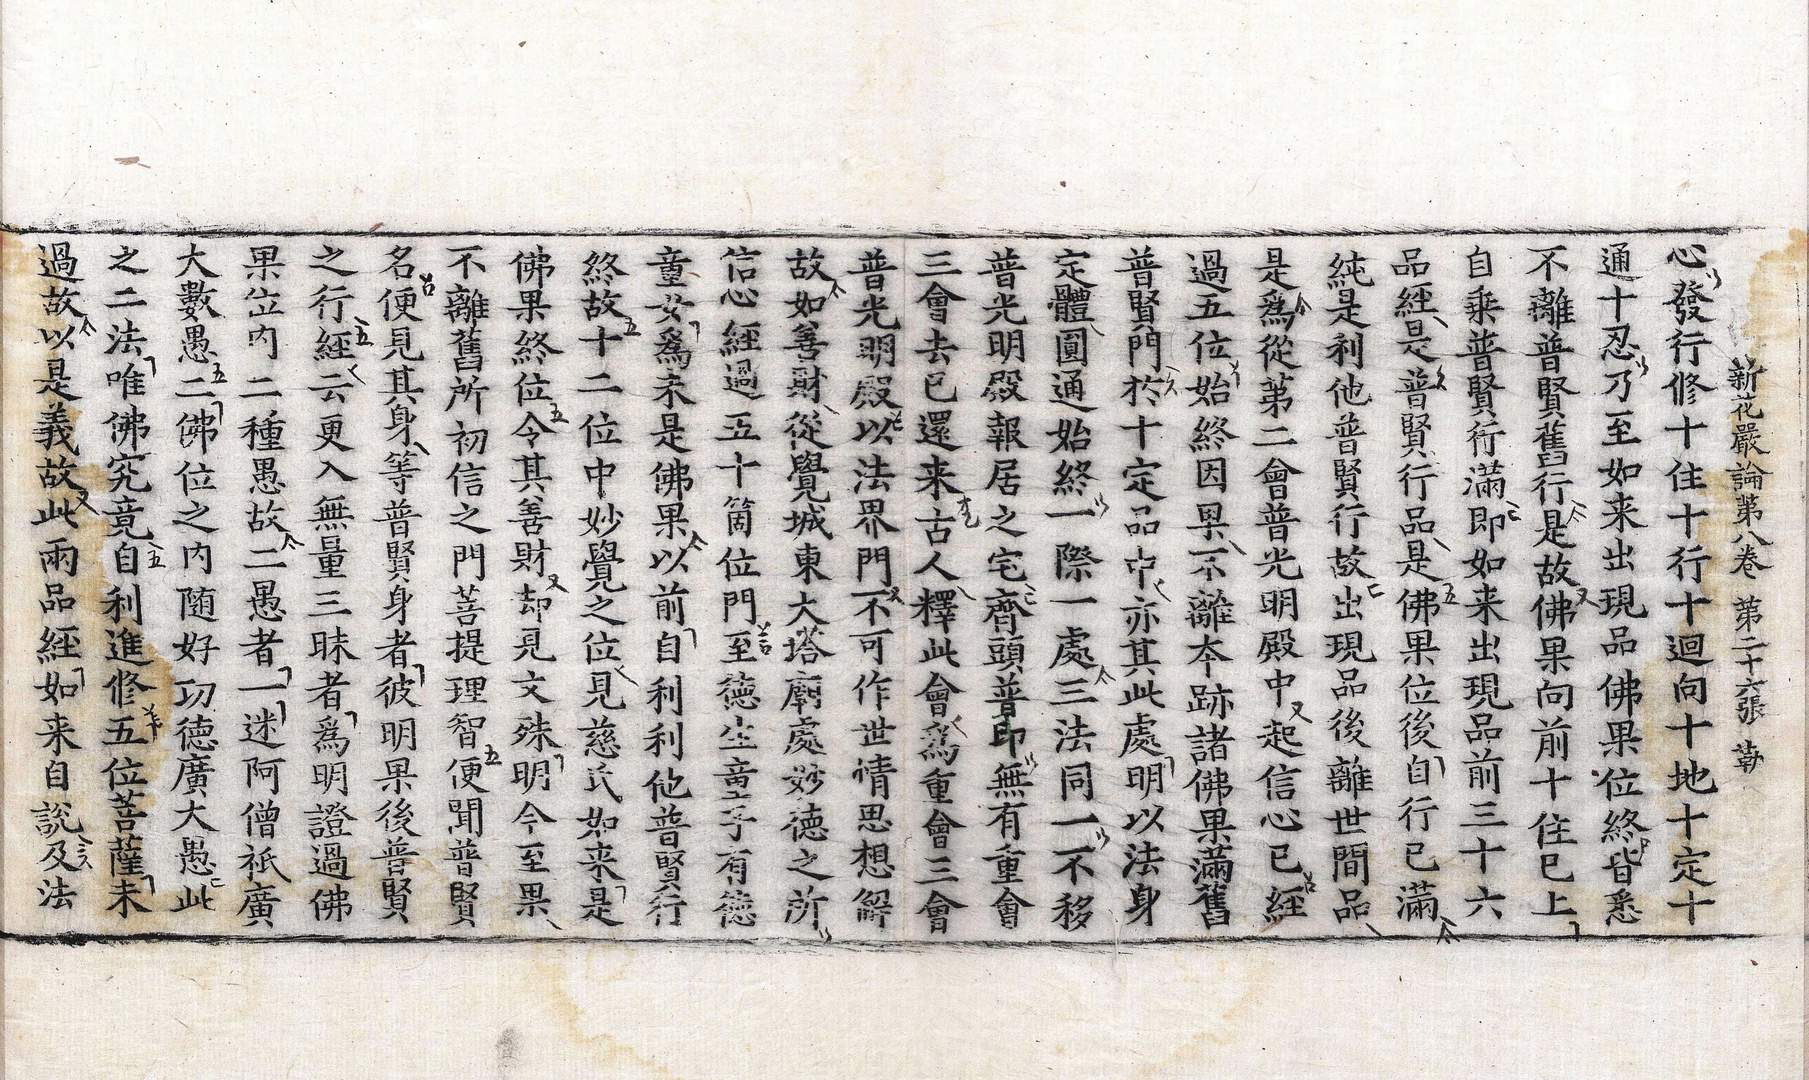 新花嚴論第八卷 第二十六張 勒
心發行修十住十行十迴向十地十定十
通十忍乃至如来出現品佛果位終皆悉
不離普賢舊行是故佛果向前十住已上
自乘普賢行滿即如来出現品前三十六
品經是普賢行品是佛果位後自行已滿
純是利他普賢行故出現品後離世間品
是爲從苐二會普光明殿中起信心已經
過五位始終因果不離夲跡諸佛果滿舊
普賢門於十定品中亦其此處明以法身
定體圓通始終一際一處三法同一不移
普光明殿報居之宅齊頭普印無有重會
三會去已還来古人釋此會爲重會三會
普光明殿以法界門不可作世情思想解
故如善財從覺城東大塔廟處妙德之所
信心經過五十箇位門至德生童子有德
童女爲未是佛果以前自利利他普賢行
終故十二位中妙覺之位見慈氏如来是
佛果終位令其善財却見文殊明今至果
不離舊所初信之門菩提理智便聞普賢
名便見其身等普賢身者彼明果後普賢
之行經云更入無量三昧者爲明證過佛
果位内二種愚故二愚者一迷阿僧祇廣
大數愚二佛位之内随好功德廣大愚此
之二法唯佛究竟自利進修五位菩薩未
過故以是義故此兩品經如来自說及法